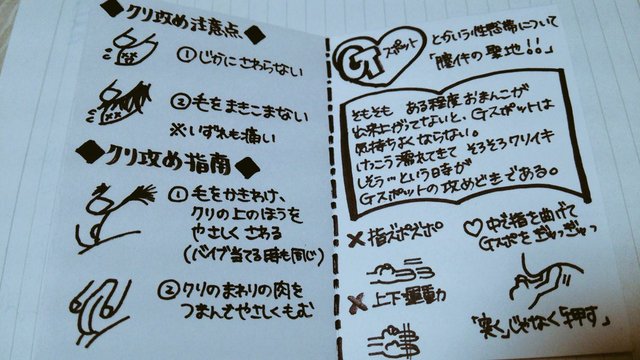 ◆クリ攻め注意点◆
①じかにさわらない
②毛をまきこまない
※いずれも痛い
◆クリ攻め指南◆
①毛をかきわけ、
クリの上のほうを
やさしくさわる
(バイブ当てる時も同じ)
②クリのまわりの肉を
つまんでやさしくもむ
Gスポット
とかいう性感帯について
「膣イキの聖地!!」
そもそも ある程度おまんこが
出来上がってないと、Gスポットは
気持ちよくならない。
けっこう濡れてきて そろそろクリイキ
しそう…という時が
Gスポットの攻めどきである。
×指ズボズボ
×上下運動
♡中で指を曲げて
Gスポをぎゅっぎゅっ
「突く」じゃなく「押す」